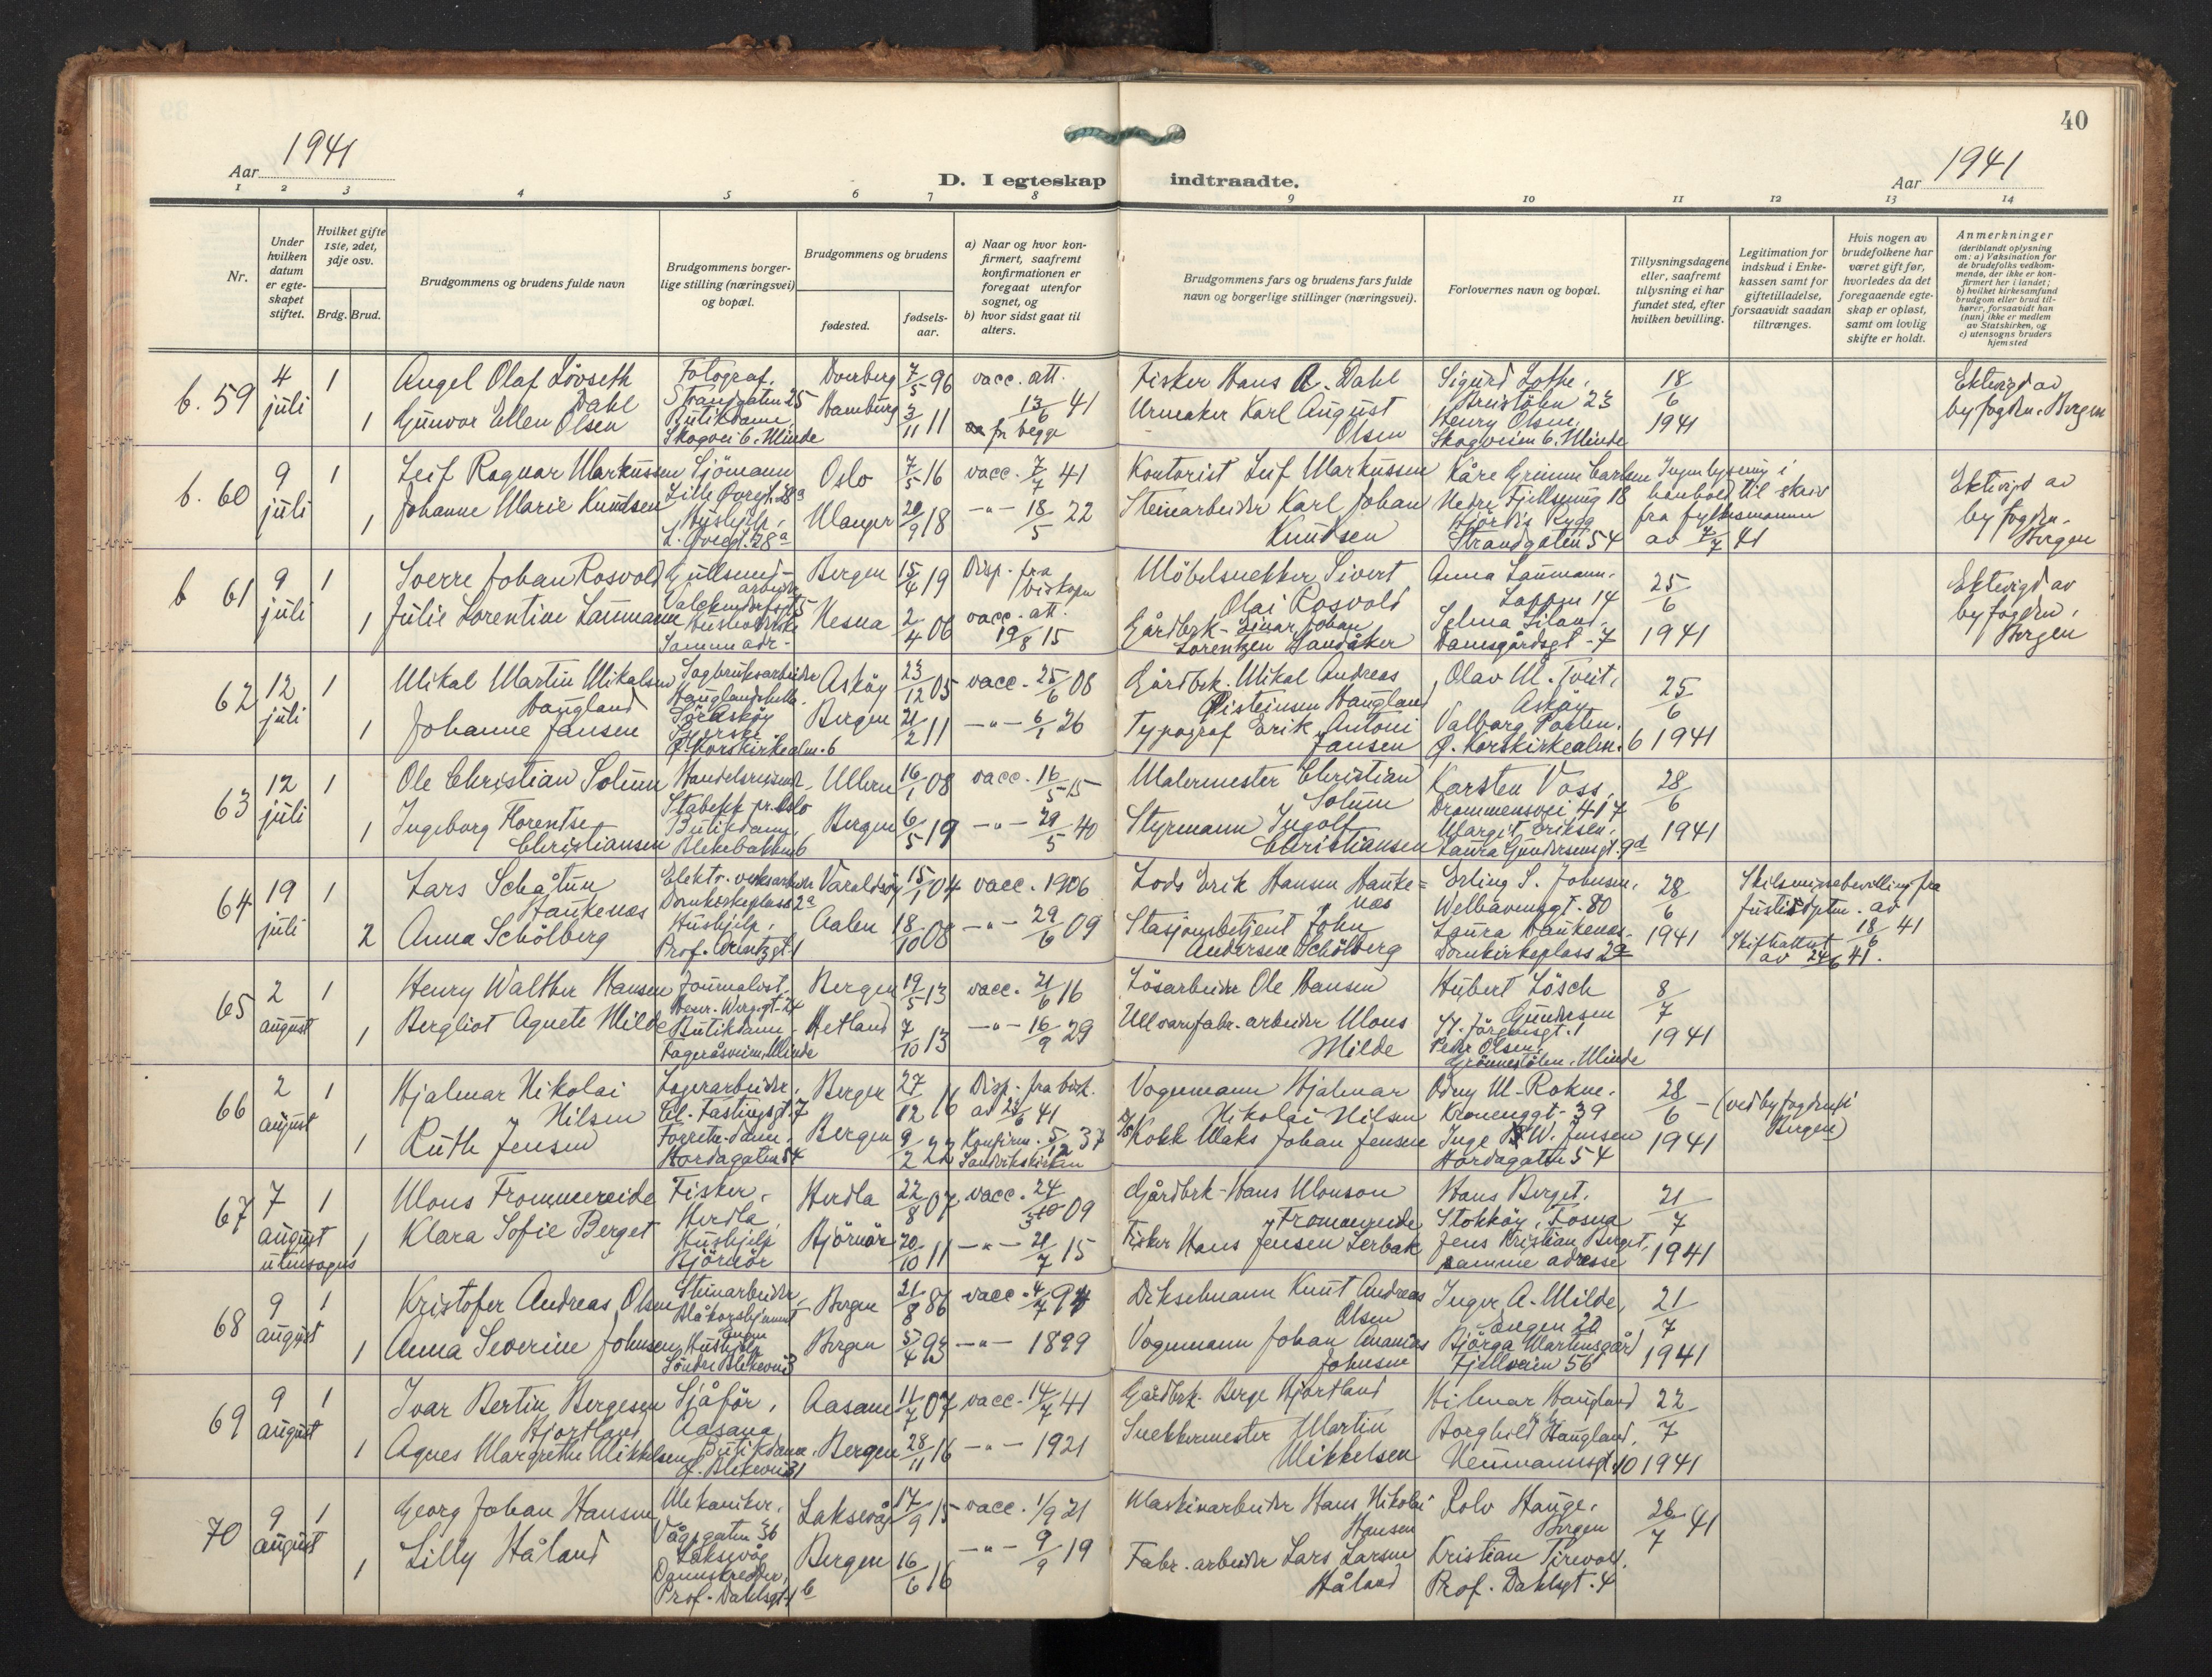 40
Aar 1941
D. I egteskap indtraadte.
Aar 1941
1 2 3 4 5 6 7 8 9 10 11 12 13 14
Nr.
Under hvilken datum er egteskapet stiftet.
Hvilket gifte 1ste, 2det, 3dje osv.
Brdg. Brud.
Brudgommens og brudens fulde navn
Brudgommens borgerlige stilling (næringsvei) og bopæl.
Brudgommens og brudens
fødested.
fødselsaar.
a) Naar og hvor konfirmert, saafremt konfirmationen er foregaat utenfor sognet, og
b) hvor sidst gaat til alters.
Brudgommens fars og brudens fars fulde navn og borgerlige stillinger (næringsvei).
Forlovernes navn og bopæl.
Tillysningsdagene eller, saafremt tillysning ei har fundet sted, efter hvilken bevilling.
Legitimation for indskud i Enkekassen samt for giftetilladelse, forsaavidt saadan tiltrænges.
Hvis nogen av brudefolkene har været gift før, hvorledes da det foregaaende egteskap er opløst, samt om lovlig skifte er holdt.
Anmerkninger
(deriblandt oplysning om: a) Vaksination for de brudefolks vedkommende, der ikke er konfirmert her i landet; b) hvilket kirkesamfund brudgom eller brud tilhører, forsaavidt han (hun) ikke er medlem av Statskirken, og c) utensogns bruders hjemsted
b. 59 4 juli 1 Angel Olaf Lövseth Dahl Fotograf, Strandgaten 25 Dverberg 7/5 96 vacc. att. 13/6 41 for begge Fisker Hans A. Dahl Sigurd Lothe, Breistölen 23 18/6 1941 Ektevigd av byfogden, Bergen
1 Gunvor Ellen Olsen Butikdame, Skogvei 6, Minde Hamburg 3/11 11 Urmaker Karl August Olsen Henry Olsen, Skogveien 6, Minde
b. 60 9 juli 1 Leif Ragnar Markussen Sjömann Lille Övregt. 28a Oslo 7/5 16 vacc. 7/7 41 Kontorist Leif Markussen Kåre Grimm Carlsen Nedre Fjellsmug 18 Ingen lysning i henhold til skriv fra fylkesmannen av 7/7 41 Ektevigd av byfogden, Bergen
1 Johanne Marie Knudsen Hushjelp, L. Övregt. 28a Manger 20/9 18 -"- 18/5 22 Steinarbeider Karl Johan Knudsen Hjördis Rygg Strandgaten 54
b 61 9 juli 1 Sverre Johan Rosvold Gullsmedarbeider Valckendorfsgt 5 Bergen 15/4 19 Disp. fra biskopen Möbelsnekker Sivert Olai Rosvold Anna Laumann, Lappen 14 25/6 1941 Ektevigd av byfogden, Bergen
1 Julie Lorentine Laumann Husholderske Samme adr. Nesna 2/4 06 vacc. att. 19/8 15 Gårdbrk. Einar Johan Lorentzen Handåker Selma Siland, Damsgårdsgt. 7
62 12 juli 1 Mikal Martin Mikalsen Haugland Sagbruksarbeider Hauglandshella, Askøy 23/12 05 vacc. 25/6 08 Gårdbrk. Mikal Andreas Øisteinsen Haugland Olav M. Tveit, Askøy 25/6 1941
1 Johanne Jansen Ø. Korskirkealm. 6 Bergen 21/2 11 -"- 6/1 26 Typograf Erik Antoni Jansen Valborg Posten, Ø. Korskirkealm. 6
63 12 juli 1 Ole Christian Solum Handelsreisende, Stabekk pr. Oslo Ullern 16/1 08 vacc. 16/5 15 Malermester Christian Solum Karsten Voss, Drammensvei 417 28/6 1941
1 Ingeborg Florentse Christiansen Butikdame, Blekebakken 6 Bergen 6/5 19 -"- 29/5 40 Styrmann Ingolf Christiansen Margit Eriksen, Laura Gundersensgt. 9d
64 19 juli 1 Lars Schåtun Haukenæs Elektr. verksarbeider Domkirkeplass 2a Varaldsøy 15/1 04 vacc. 1906 Lods Erik Hansen Haukenæs Erling S. Johnsen, Welhavensgt. 80 28/6 1941 Skilsmissebevilling fra justisdeptm. av 18/6 41 Skifteattest av 24/6 41.
2 Anna Schölberg Hushjelp, Prof. Arentzgt. 1 Aalen 18/10 08 -"- 29/6 09 Stasjonsbetjent John Andersen Schölberg Laura Haukenæs. Domkirkeplass 2a
65 2 august 1 Henry Walther Hansen Journalist, Henr. Werg.gt. 24 Bergen 19/5 13 vacc. 21/6 16 Lösarbeider Ole Hansen Hubert Lösch Gundersen St. Jörgensgt. 1 8/7 1941
1 Bergliot Agnete Milde Butikdame, Fageråsveien, Minde Hetland 7/10 13 -"- 16/9 29 Ullvarefabr. arbeider Mons Milde Peder Olsen, Grönnestölen, Minde
66 2 august 1 Hjalmar Nikolai Nilsen Lagerarbeider, Cl. Fastingsgt. 7 Bergen 27/12 16 Disp. fra bisk. av 28/6 41 Vognmann Hjalmar Nikolai Nilsen Odny M. Rokne. Kroneng­gt. 39 28/6 1941 (ved byfogden i Bergen)
1 Ruth Jensen Forretn. dame, Hordagaten 54 Bergen 9/2 22 Konfirm. 5/12 37 Sandvikskirken Kokk Maks Johan Jensen Inge W. Jensen Hordagaten 54
67 7 august utensogns 1 Mons Frommereide Fisker, Herdla Herdla 22/8 07 vacc. 24/10 09 Gårdbrk. Hans Monsen Frommereide Hans Berget, Stokköy, Fosna 21/7 1941
1 Klara Sofie Berget Hushjelp Björnör Björnör 20/10 11 -"- 21/7 15 Fisker Hans Jensen Lerbak Jens Kristian Berget, samme adresse
68 9 august 1 Kristofer Andreas Olsen Steinarbeider, Blåkorshjemmet Bergen 21/8 86 vacc. 4/7 94 Dikselmann Knut Andreas Olsen Inger A. Milde, Engen 20 21/7 1941
1 Anna Severine Johnsen Hushjelp Söndre Blekevei 3 Bergen 5/4 93 -"- 1899 Vognmann Johan Ananias Johnsen Björga Martinsgård Fjellveien 56
69 9 august 1 Ivar Bertin Bergesen Hjortland Sjåfør, Aasane Aasane 11/7 07 vacc. 14/7 41 Gårdbrk. Berge Hjortland Hilmar Haugland 22/7 1941
1 Agnes Margrethe Mikkelsen Butikdame, S. Blekevei 31 Bergen 28/11 16 -"- 1921 Snekkermester Martin Mikkelsen Borghild Haugland, Neumannsgt. 10
70 9 august 1 Georg Johan Hansen Mekaniker, Vågsgaten 36 Laksevåg Laksevåg 17/9 15 vacc. 1/9 21 Maskinarbeider Hans Nikolai Hansen Rolv Hauge, Bergen 26/7 41
1 Lilly Håland Dameskredder, Prof. Dahlsgt. Bergen 16/6 16 -"- 9/9 19 Fabr. arbeider Lars Larsen Håland Kristian Tirevold. Prof. Dahlsgt. 4